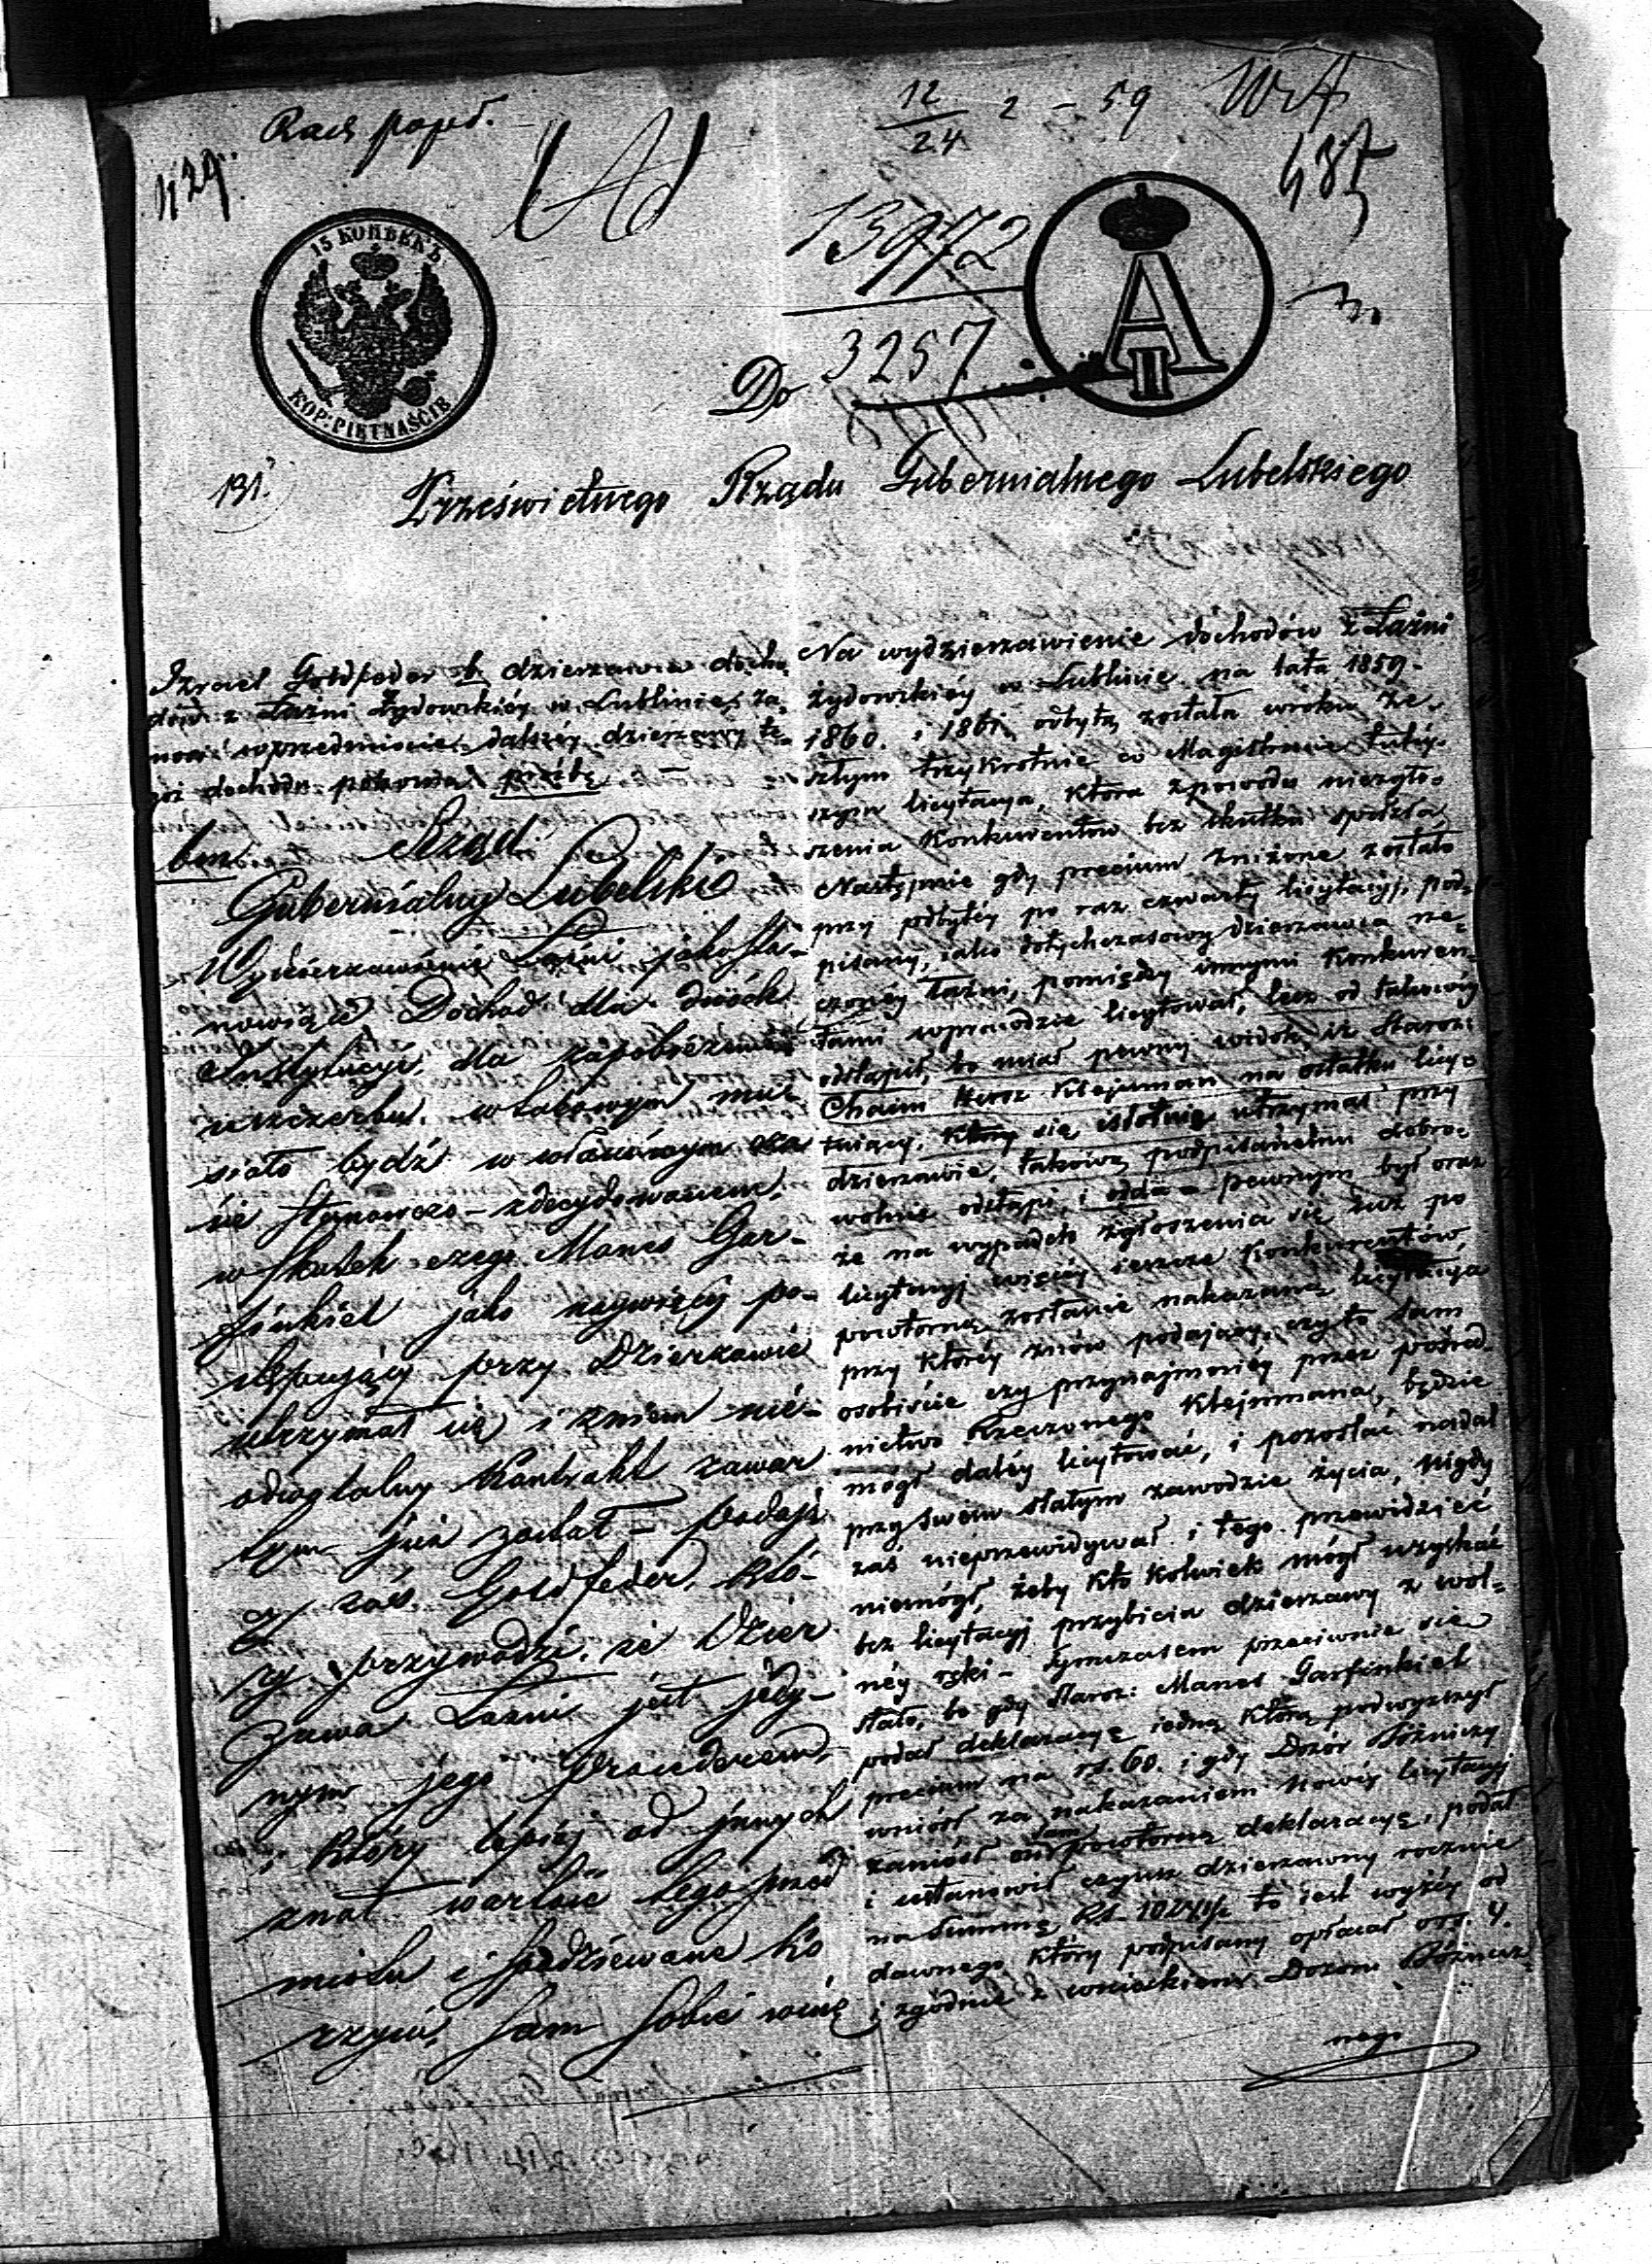 Rach popd.
12/24 2 - 59
429.
437
13972
15 КОПѢЕКЪ
KOP: PIĘTNAŚCIE
A II
Do 3257
131.
Prześwietnego Rządu Gubernialnego Lubelskiego
Izrael Goldfeder b. dzierzawca docho-
dów z Łazni Żydowskiéy w Lublinie, za-
nosi wprzedmiocie dalszéy dzierzawy te-
goż dochodu pokorną prośbę
Rząd
Gubernialny Lubelski
Wydzierzawienie Łaźni jako sta-
nowiące Dochod dla dwóch
Instytucyi, dla zapobieżenia
uszczerbku wtakowym mu-
siało bydź w właściwym cza
sie stanowczo zdecydowanem,
w skutek czego Manes Gar-
finkiel jako naywięcéj po-
stępujący przy Dzierzawie
utrzymał się i zniem nie-
odwołalny Kontrakt zawar
tym już został – podają
cy zaś Goldfeder, któ-
ry przywodzi, że Dzier
żawa Łazni jest jedy-
nym jego procederem,
i który lepiéj od innych
znał wartość tego przed
miotu i spodziewane ko
rzyści, sam sobie winę
Na wydzierzawienie dochodów z Łaźni
żydowskiéy w Lublinie na lata 1859.
1860. i 1861. odbytą została wroku ze-
szłym trzykrotnie w Magistracie tutéy-
szym licytacya, która zpowodu niezgło-
szenia Konkurentów bez skutku spełzła,
Następnie gdy precium zniżone zostało
przy odbytéy po raz czwarty licytacyj, pod-
pisany, jako dotychczasowy dzierzawca rze-
czonéy Łaźni, pomiędzy innymi Konkuren-
tami wprawdzie licytował, lecz od takowéy
odstąpił, bo miał pewny widok, iż Staroz:
Chaim Hersz Klejnman na ostatku licy-
tujący, który się istotnie utrzymał przy
dzierzawie, takową podpisanemu dobro-
wolnie odstąpi, i odda – pewnym był oraz
że na wypadek zgłoszenia się już po
licytacyj więcéy jeszcze Konkurentów,
powtórną zostanie nakazaną licytacya
przy któréy znów podający, czy to sam
osobiście czy przynajmniéy przez pośred-
nictwo Rzeczonego Klejnmana, będzie
mógł daléy licytować, i pozostać nadal
przy swem stałym zawodzie życia, Nigdy
zaś nieprzewidywał i tego przewidzieć
niemógł, żeby kto kolwiek mógł uzyskać
bez licytacyj przybicia dzierzawy z wol-
néy ręki – tymczasem przeciwnie się
stało, bo gdy Staroz: Manes Garfinkiel
podał deklaracyę jedną którą podwyższył
precium na rs. 60. i gdy Dozór Bóżniczy
wniósł za nakazaniem nowéy licytacyj
zaniósł on sam powtórną deklaracyę, podał
i ustanowił czynsz dzierzawny rocznie
na Summę Rs. 1024½ to jest wyżéy od
dawnego który podpisany opłacał o rs. 4.
i zgodnie z wnioskiem Dozoru Bóżnicz-
nego